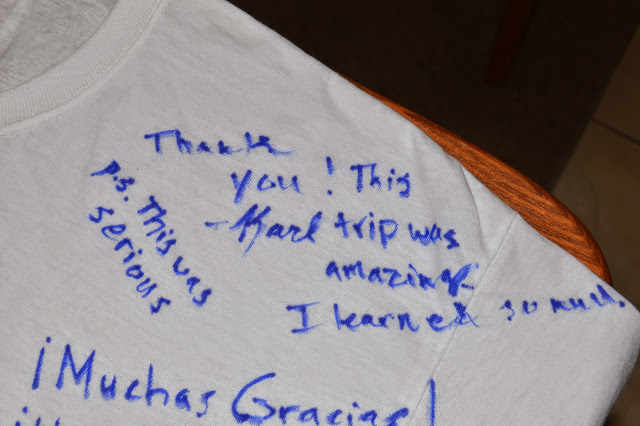 Thank
you! This
-Karl trip was
amazing
I learned so much.
p.s. This was
serious
¡Muchas Gracias!